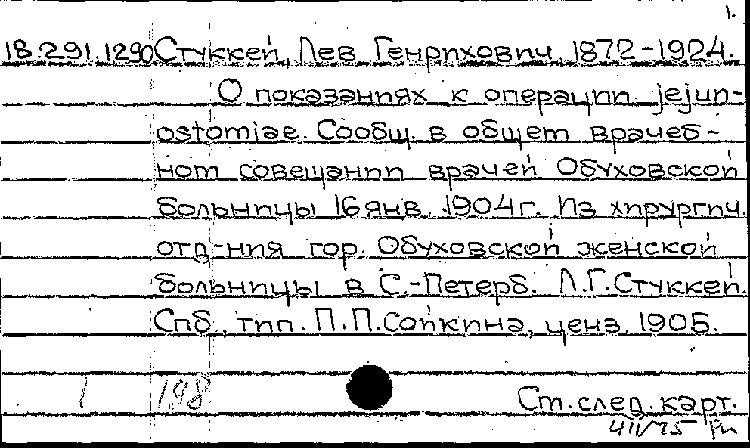 1.
18.291.1290 Стуккей, Лев Генрихович, 1872-1924.
О показаниях к операции jejun-
ostomiae. Сообщ. в общем врачеб-
ном совещании врачей Обуховской
больницы 16 янв. 1904г. Из хирургич.
отд-ния гор. Обуховской женской
больницы в С.-Петерб. Л.Г.Стуккей.
Спб., тип. П.П.Сойкина, ценз. 1905.
1 198
Ст. след. карт.